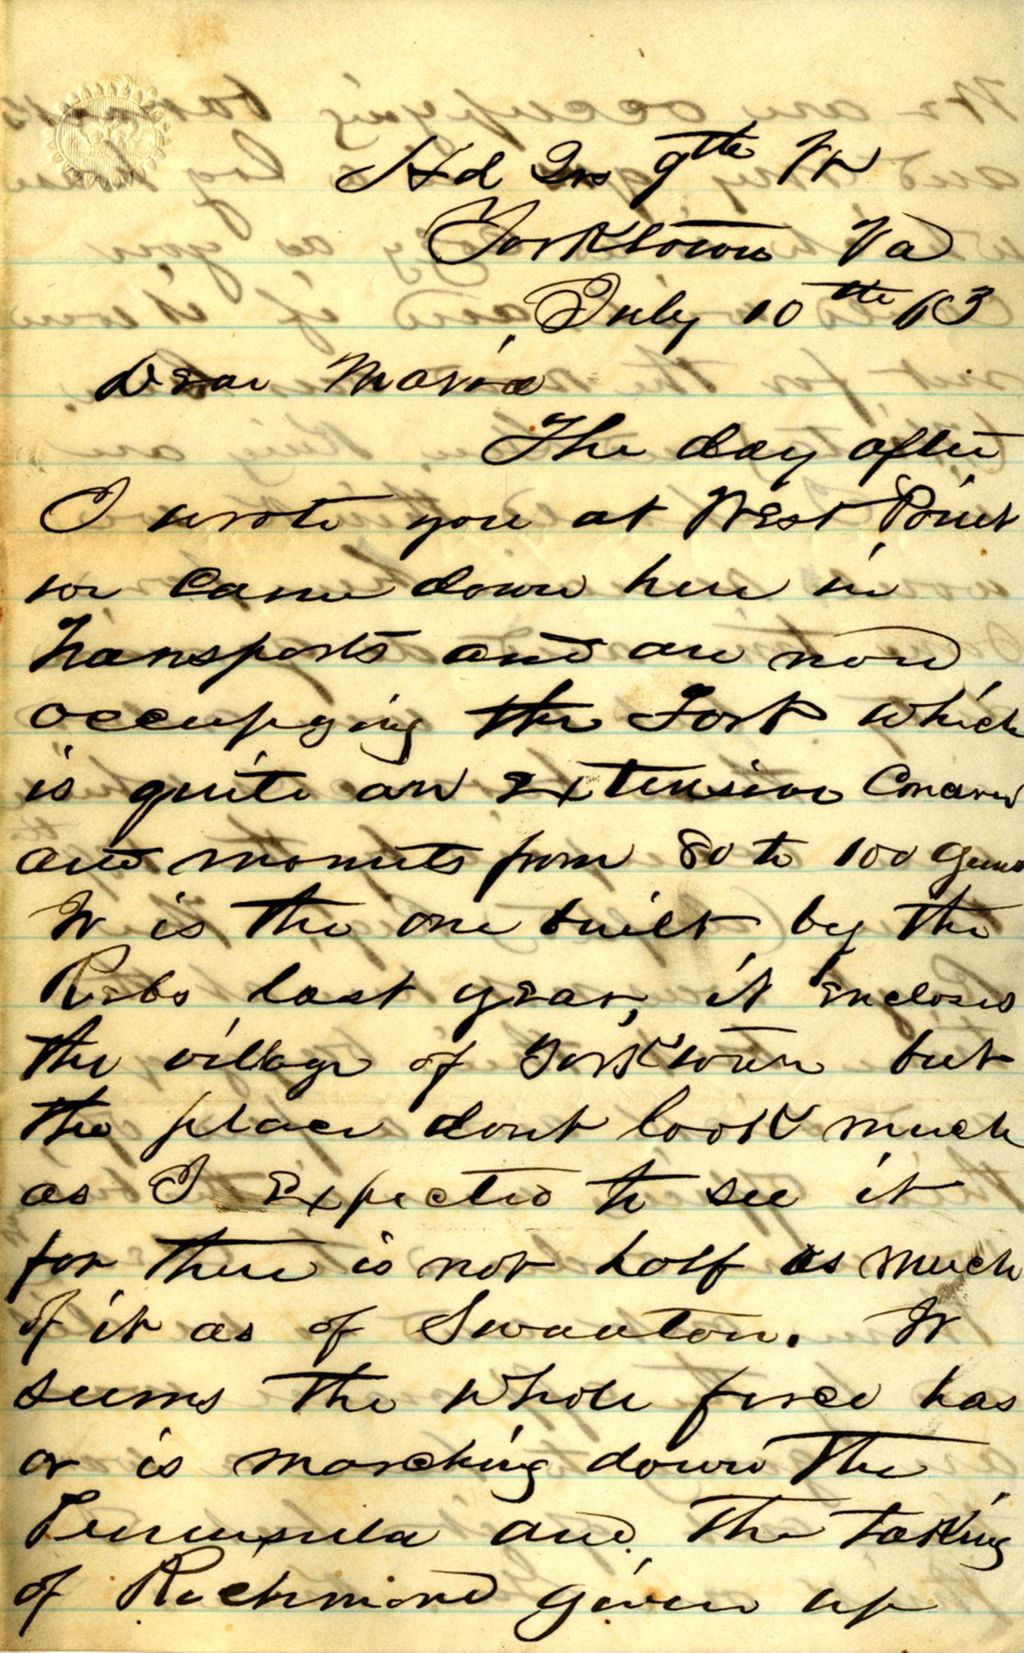 Hd Qrs 9th Vt
Yorktown Va
July 10th 63
Dear Maria
The day after
I wrote you at West Point
we came down here in
Transports and are now
occupying the Fort which
is quite an extensive concern
and mounts from 80 to 100 guns
It is the one built by the
Rebs last year, it encloses
the village of Yorktown but
the place dont look much
as I expected to see it
for there is not half as much
of it as of Swanton. It
seems the whole force has
or is marching down the
Peninsula and the taking
of Richmond given up